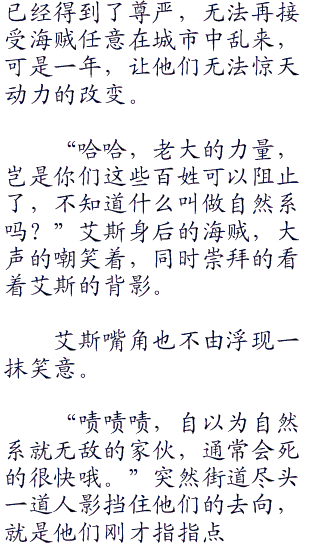 已经得到了尊严，无法再接
受海贼任意在城市中乱来，
可是一年，让他们无法惊天
动力的改变。
“哈哈，老大的力量，
岂是你们这些百姓可以阻止
了，不知道什么叫做自然系
吗？”艾斯身后的海贼，大
声的嘲笑着，同时崇拜的看
着艾斯的背影。
艾斯嘴角也不由浮现一
抹笑意。
“啧啧啧，自以为自然
系就无敌的家伙，通常会死
的很快哦。”突然街道尽头
一道人影挡住他们的去向，
就是他们刚才指指点